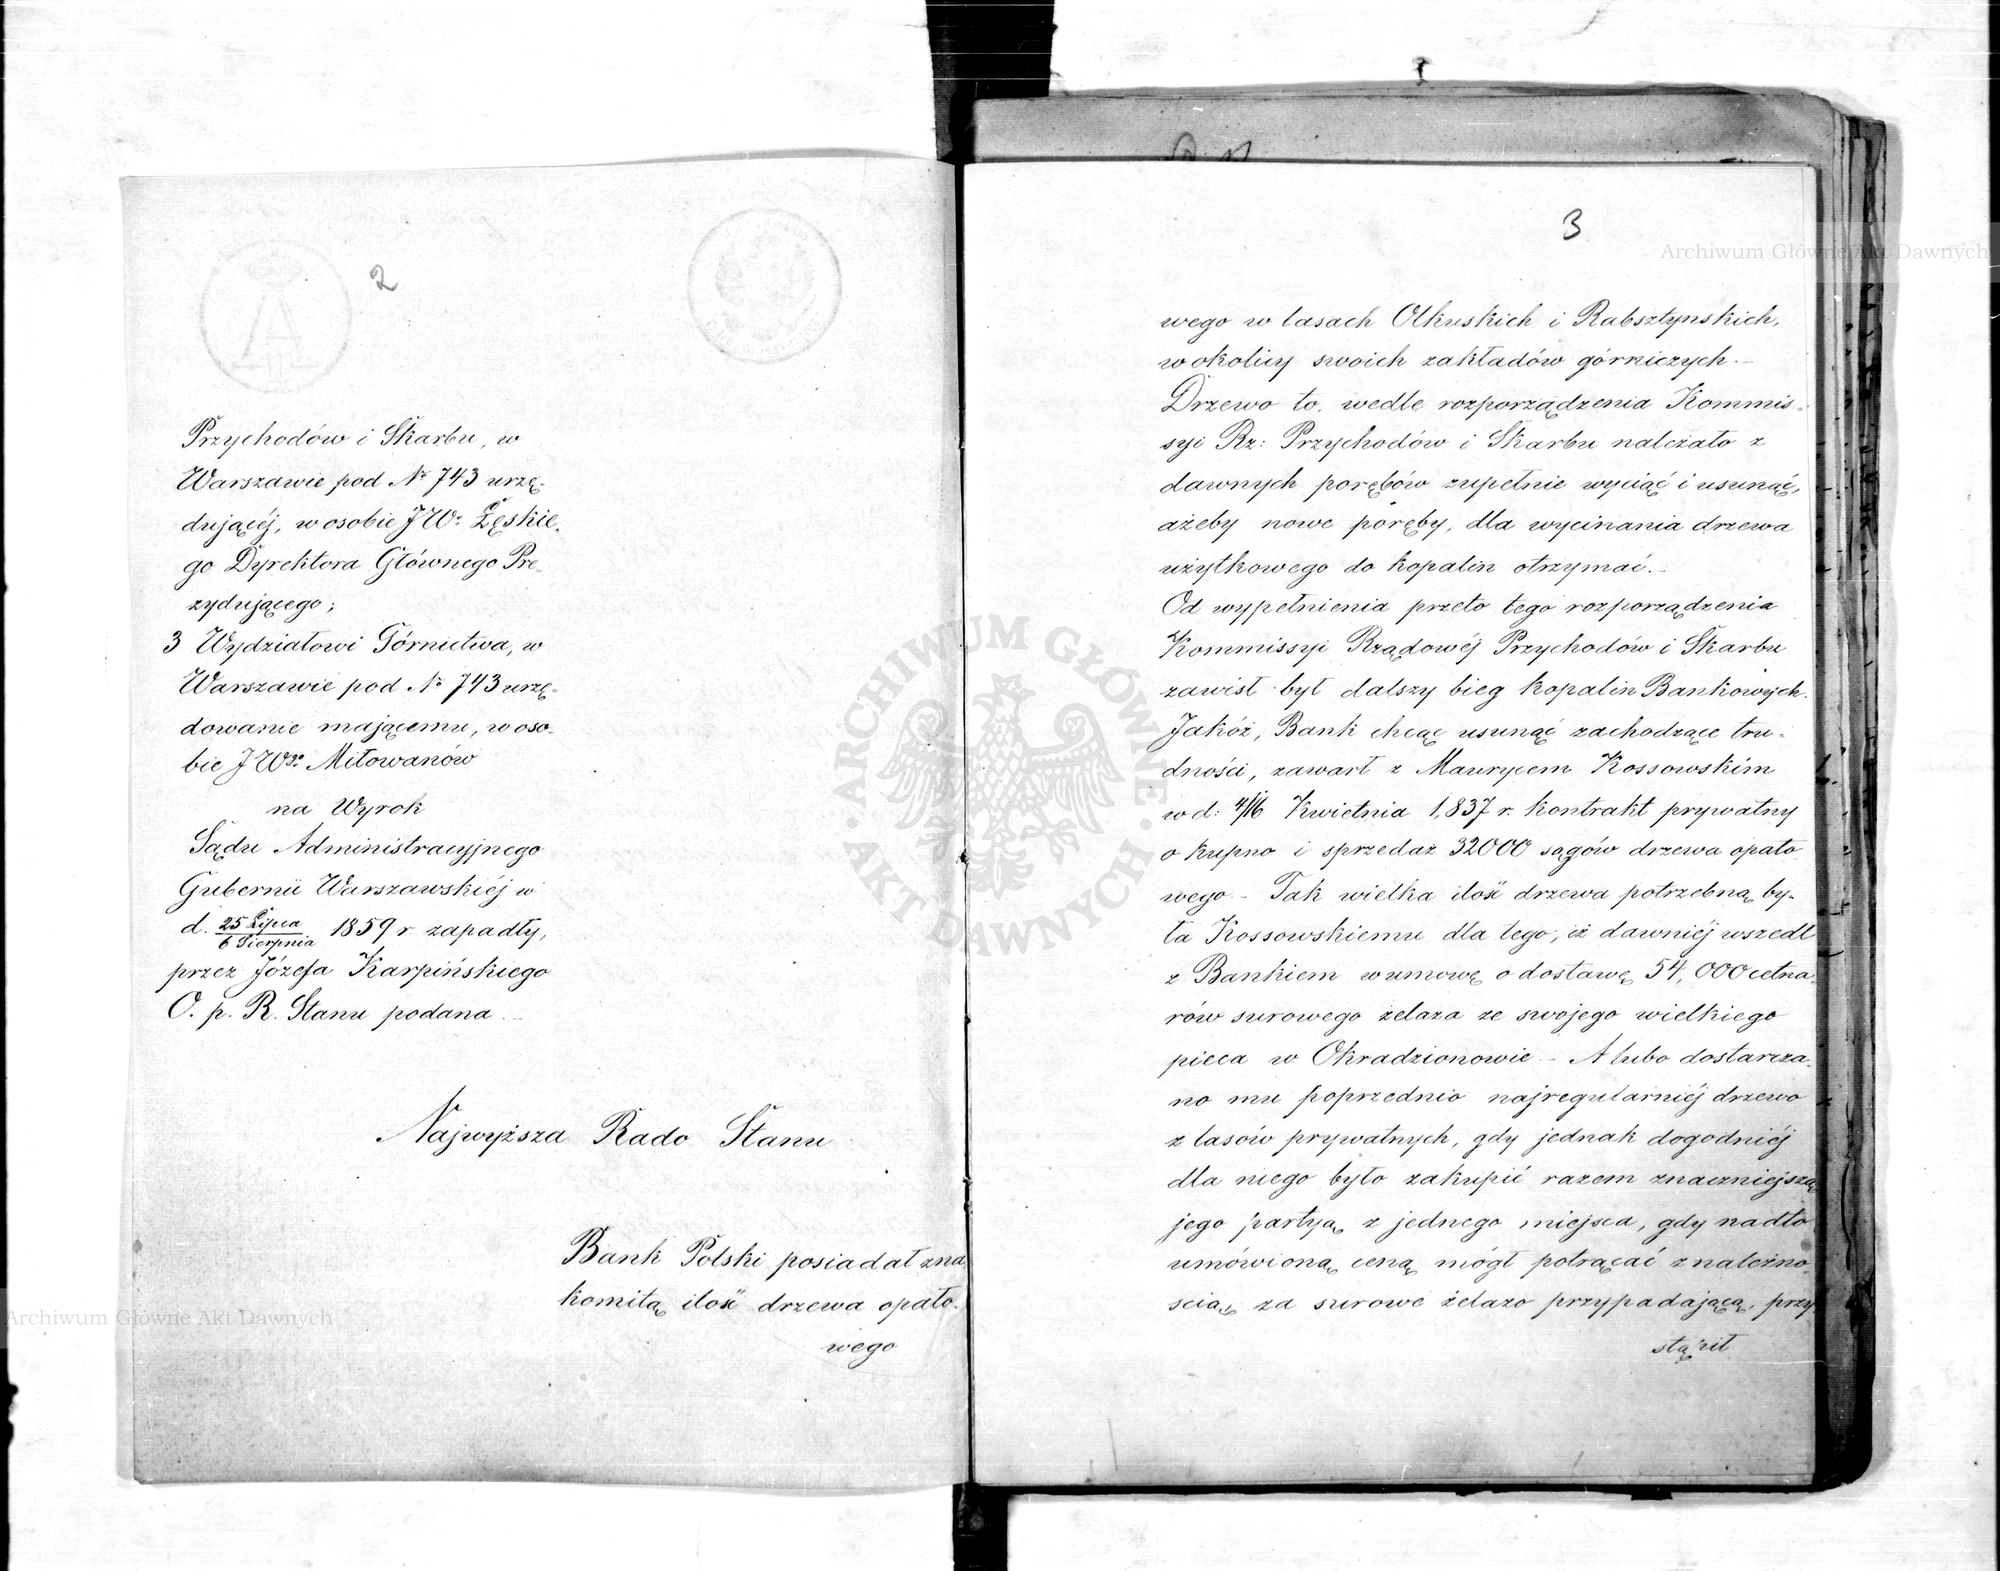 2
Przychodów i Skarbu, w
Warszawie pod Nr 743 urzę-
dującéj, w osobie JWo Łęskie-
go Dyrektora Głównego Pre-
zydującego;
3 Wydziałowi Górnictwa, w
Warszawie pod Nr 743 urzę-
dowanie mającemu, w oso-
bie JWgo Miłowanów
na Wyrok
Sądu Administracyjnego
Gubernii Warszawskiéj w
d. 25 Lipca / 6 Sierpnia 1859 r zapadły,
przez Józefa Karpińskiego
O. p. R. Stanu podana. –
Najwyższa Rado Stanu
Bank Polski posiadał zna
komitą ilość drzewa opało-
wego
3
wego w lasach Olkuskich i Rabsztynskich,
w okolicy swoich zakładów górniczych. –
Drzewo to, wedle rozporządzenia Kommis-
syi Rz: Przychodów i Skarbu należało z
dawnych porębów zupełnie wyciąć i usunąć,
ażeby nowe poręby, dla wycinania drzewa
użytkowego do kopalin otrzymać. –
Od wypełnienia przeto tego rozporządzenia
Kommissyi Rządowéj Przychodów i Skarbu
zawisł był dalszy bieg kopalin Bankowych.
Jakóż, Bank chcąc usunąć zachodzące tru-
dności, zawarł z Maurycem Kossowskim
w d: 4/16 Kwietnia 1,837 r. kontrakt prywatny
o kupno i sprzedaż 32000 sągów drzewa opało
wego – Tak wielka ilość drzewa potrzebną by-
ła Kossowskiemu dla tego, iż dawniéj wszedł
z Bankiem w umowę o dostawę 54,000 cetna-
rów surowego żelaza ze swojego wielkiego
pieca w Okradzionowie – A lubo dostarcza-
no mu poprzednio najregularniéj drzewo
z lasów prywatnych, gdy jednak dogodniéj
dla niego było zakupić razem znaczniejszą
jego partyą z jednego miejsca, gdy nadto
umówioną ceną mógł potrącać z należno-
scią, za surowe żelazo przypadającą, przy
stąpił
ARCHIWUM GŁÓWNE · AKT DAWNYCH ·
Archiwum Główne Akt Dawnych
Archiwum Główne Akt Dawnych